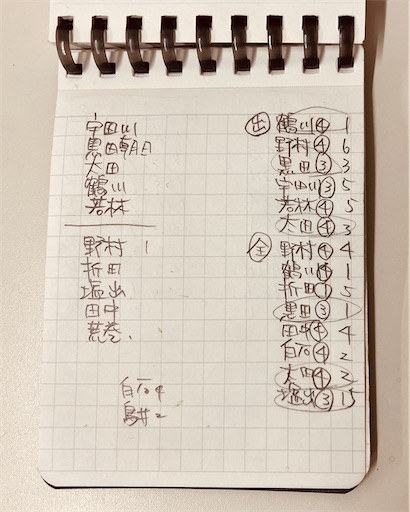 宇田川
黒田朝日
太田
鶴川
若林
野村 1
折田
塩出
田中
荒巻、
白石4
鳥井2
出 鶴川④ 1
野村④ 6
黒田③ 3
宇田川③ 5
若林④ 5
太田④ 3
全 野村④ 4
鶴川④ 1
折田 5
黒田③ 1
田中④ 4
白石④ 2
太田④ 2
塩出③ 15